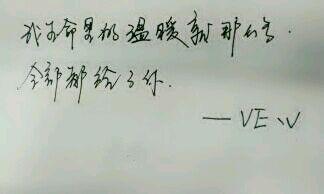 我生命里的温暖就那么多.
全部都给了你.
— VE、V